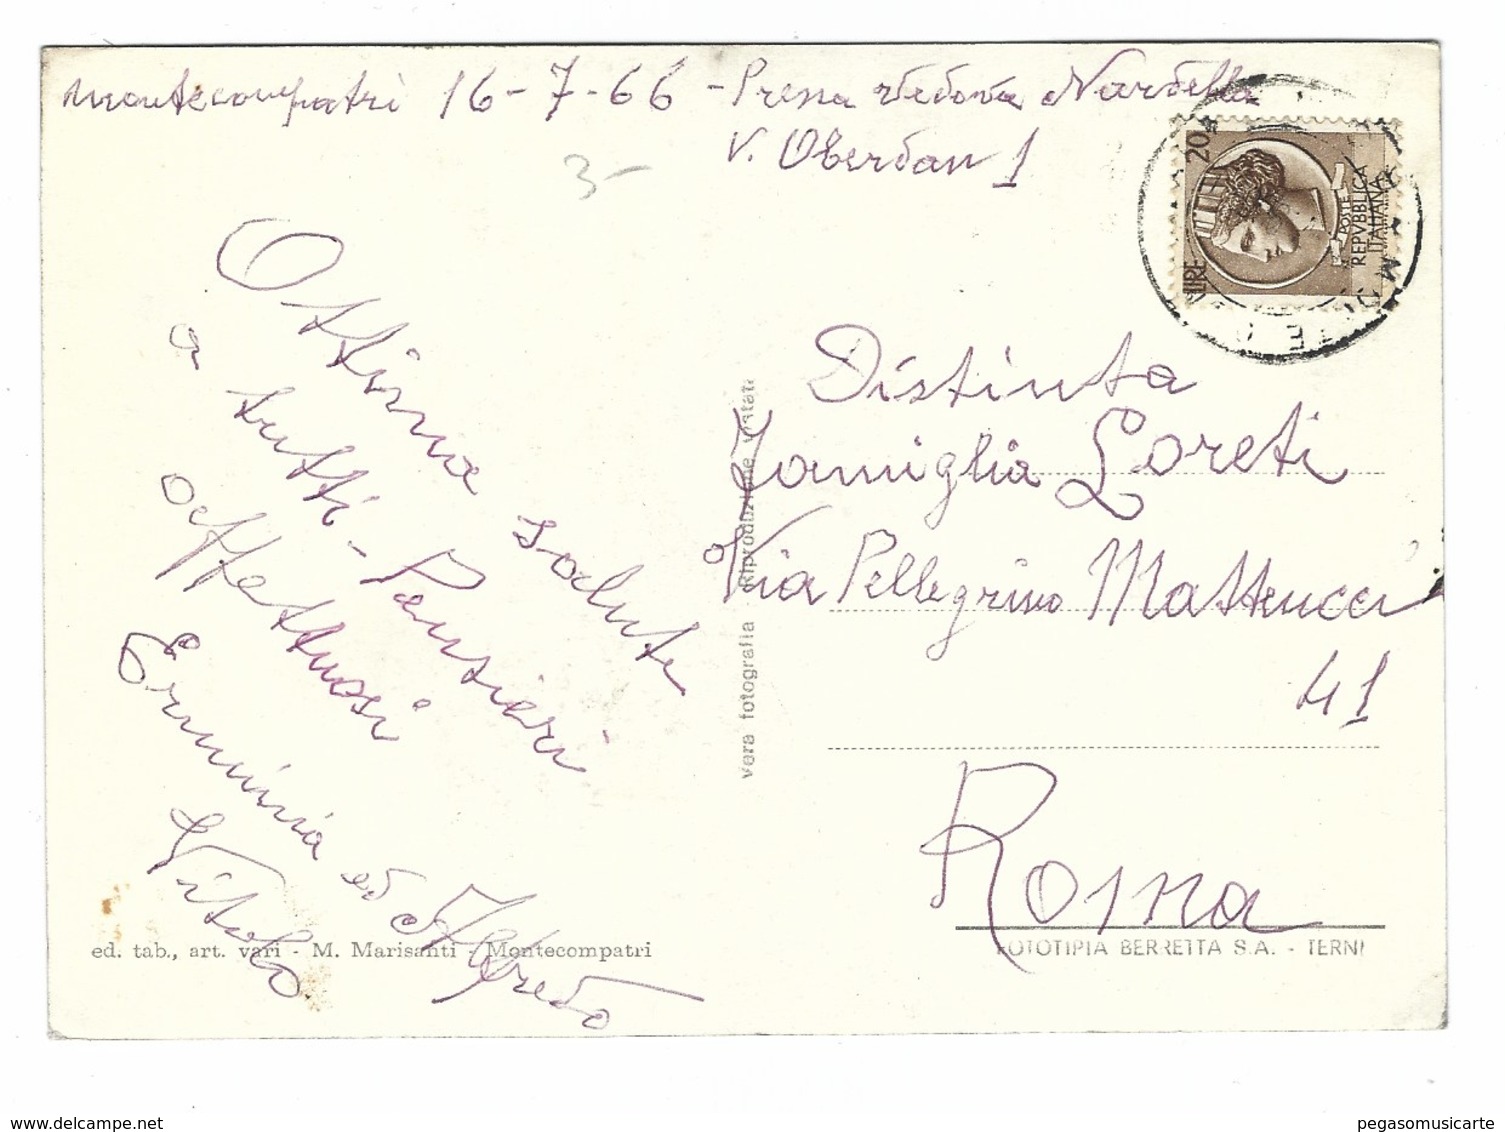 Montecompatri 16-7-66 - Presso vedova Nardella
V. Oberdan 1
3-
LIRE 20
POSTE
REPVBBLICA
ITALIANA
Ottima salute
a tutti - Pensieri
affettuosi
Erminia ed Alfredo
Vitolo
Distinta
Famiglia Loreti
Via Pellegrino Matteucci
41
Roma
vera fotografia - Riproduzione vietata
ed. tab., art. vari - M. Marisanti - Montecompatri
FOTOTIPIA BERRETTA S.A. - TERNI
www.delcampe.net
pegasomusicarte